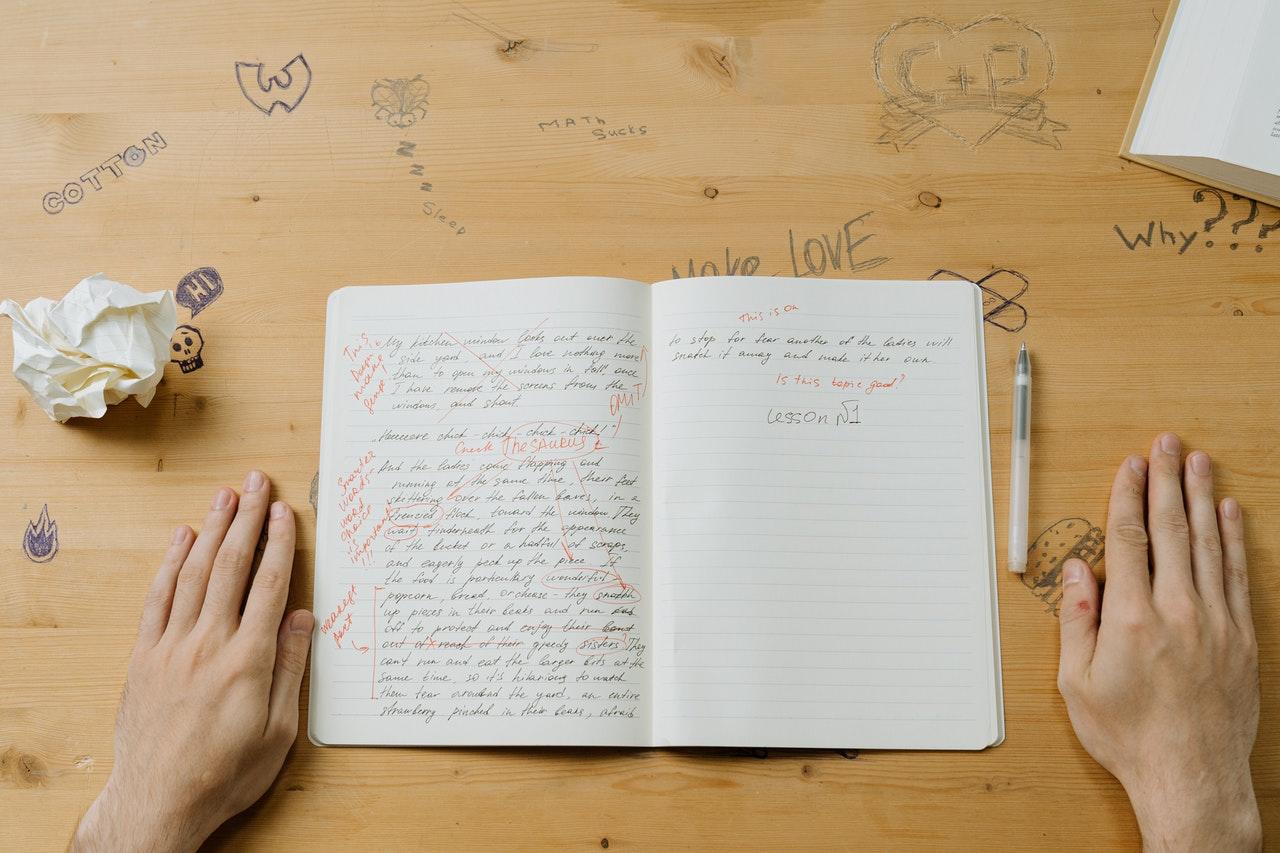 W
COTTON
N
N
N
Sleep
MATH
SUCKS
C+P
Why???
Make LOVE
HI
This
make
My kitchen window looks out over the
side yard and I love nothing more
than to open my windows in fall, once
I have remove the screens from the
windows, and shout.
OMIT
chick-chick-chick-chick!"
Check THESAURUS
And the ladies come flapping and
running at the same time, their feet
skittering over the fallen leaves, in a
frenzied flock toward the window. They
wait underneath for the appearance
of the bucket or a hadful of scraps,
and eagerly peck up the piece. If
the food is particulary wonderful
popcorn, bread, or cheese - they snatch
up pieces in their beaks and run and
off to protect and enjoy their
out of reach of their greedy sisters? They
can't run and eat the larger bits at the
same time, so it's hilarious to watch
them tear around the yard, an entire
strawberry pinched in their beaks, afraid
Smarter
words -
word
choice
is
important!!
weakest
part
This is ok
to stop for fear another of the ladies will
snatch it away and make it her own.
Is this topic good?
Lesson №1